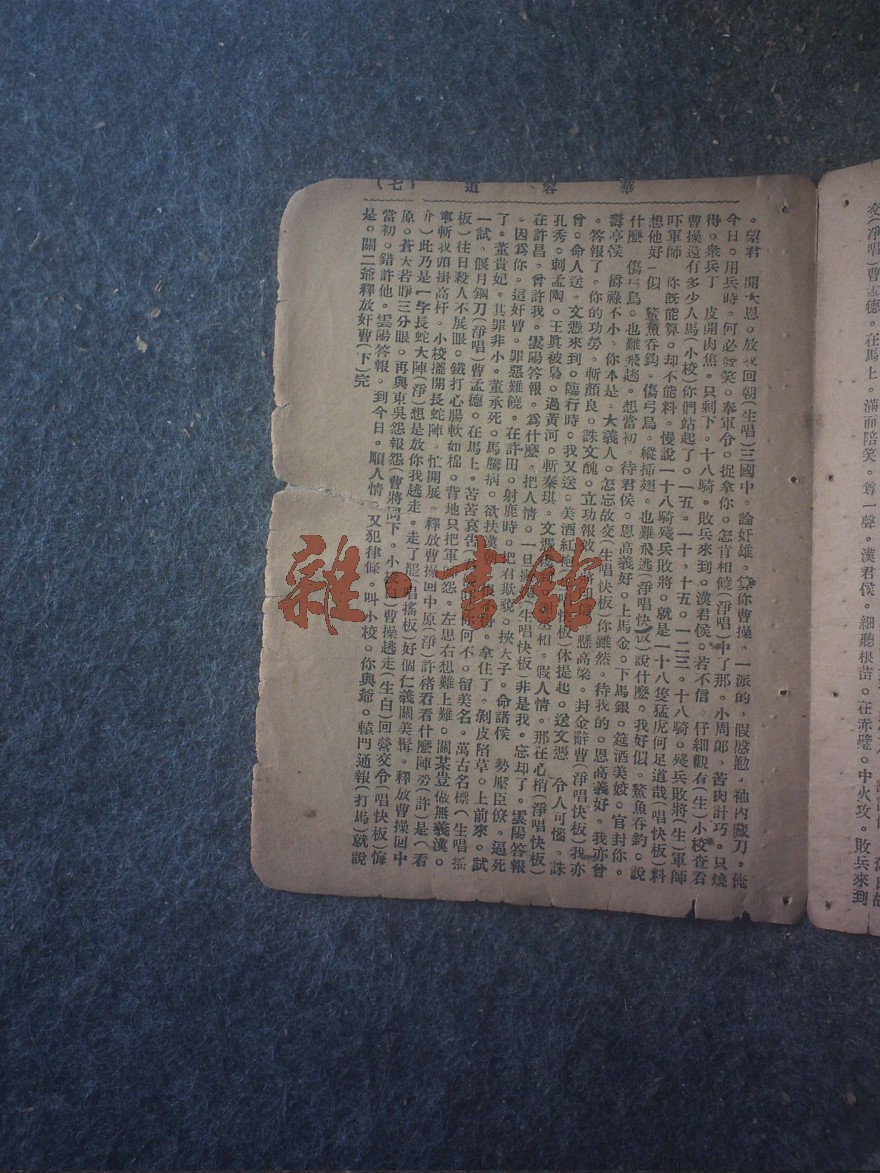 華容道 (七)
。望君 開大恩。放我回朝(生唱)三國中。論奸雄。你曹操。一派的。假慇懃。袖內藏刀。俺
今日。用兵時。何必發笑。奉軍令。捉拿你。怎肯相饒(淨唱)中了那。小周郎。苦肉計巧。只燒
得。衆兵丁 皮開肉焦。只剩下。十八騎。敗兵來到。漢君侯。若不信 仔細觀有(生)小校查看
曹操還有多少人馬(小校)你們站起了。一五。一十。十五。一二三。十八騎。殘兵敗將(生)軍師
吓軍師 你既能算。却不能料。慢說一十八騎殘兵敗將。就是一十八隻猛虎何足道哉(唱快板)料
想他好一似。鰲魚吞鈎。傷弓鳥。縱插翅。也難飛逃(淨唱快板)說什麽。我好似。鰲魚吞鈎。說
什麽 傷弓鳥。也難飛逃。想當初。待君侯。恩高義好。上馬金。下馬銀。筵酒美姣。官封你。
壽亭侯 爵祿不小。你本是。大義人。怎忘故交(生唱快板)你雖然。待我的。恩高義好。我亦曾
。答報了。你的功勞。斬顏良。誅文醜。立功報效。將印懸高梁。封金辭曹(淨唱快板)我亦
曾。命人送。文憑來到。臨行時。我又送。美酒紅袍(板)休提起。送文憑 令人可惱。誅
孔秀。刺孟陶。王眞被梟。過黃河。斬秦琪。文憑相。假人情。那在心梢(淨唱快板)
在許昌。曾許我。雲陽答報。爲什麽。把人情。一旦(生唱快板)非是我。忘却了。雲陽答報
。因爲你。這奸曹。罪惡難饒。在許田。射鹿時。把君欺藐。挾天子。命諸侯 勢壓臣僚。逼死
了。董貴妃。其罪非小。董承死。馬騰病。欲扶漢朝。拿住了。剝皮陷草。上前來。試
一試。偃月鋼刀(淨唱)曹孟德。在馬上。苦苦哀告。你何不。留美名。萬古名標(生唱搖
板)往日殺人不展眼。鐵打心腸軟如棉。背地只把軍師怨。左思右想難上難。關某豈做無義漢。
寧斬我頭掛高杆。小校擺開長蛇陣。忙開展 釋放曹操回中原(淨)許褚看看什麽陣勢(許)是(看
介)此乃是一字長蛇大陣(淨)想是放你我逃走。走了罷(唱搖板)好個仁義關美髯。釋放曹操回中
原。蒼天若睜三分眼。再興東吳怨報怨(曹將同下。小校)曹操逃走(生白)回營交令(唱快板)悔
當初。錯許他。雲陽答報。到今日。順人情。又犯律條。叫小校。你與爺。轅門通報(打馬)就說
是。關二爺釋放奸曹(下)完
交(淨唱)曹孟德。在馬上。滿面陪笑。尊一聲。漢君侯。細聽根苗。在赤壁。中火攻。敗兵來到